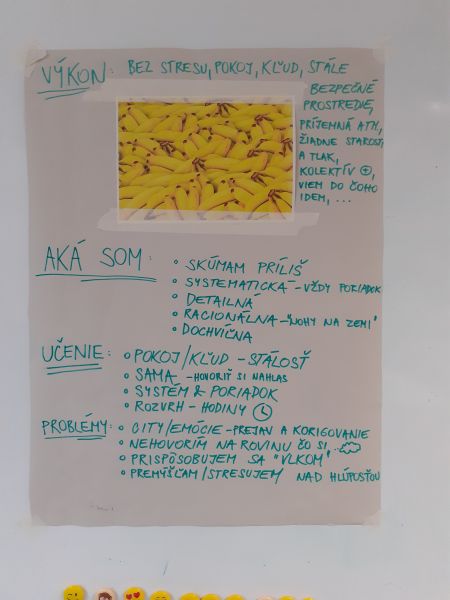 VÝKON: BEZ STRESU, POKOJ, KĽUD, STÁLE
BEZPEČNÉ
PROSTREDIE,
PRÍJEMNÁ ATM.,
ŽIADNE STAROSTI
A TLAK,
KOLEKTÍV +,
VIEM DO ČOHO
IDEM, ...
AKÁ SOM:
• SKÚMAM PRÍLIŠ
• SYSTEMATICKÁ - VŽDY PORIADOK
• DETAILNÁ
• RACIONÁLNA - "NOHY NA ZEMI"
• DOCHVÍĽNA
UČENIE: • POKOJ/KĽUD - STÁLOSŤ
• SAMA - HOVORIŤ SI NAHLAS
• SYSTÉM & PORIADOK
• ROZVRH - HODINY
PROBLÉMY: • CITY/EMÓCIE - PREJAV A KORIGOVANIE
• NEHOVORÍM NA ROVINU ČO SI ...
• PRISPÔSOBUJEM SA "VLKOM"
• PREMÝŠĽAM/STRESUJEM NAD HLÚPOSŤOU